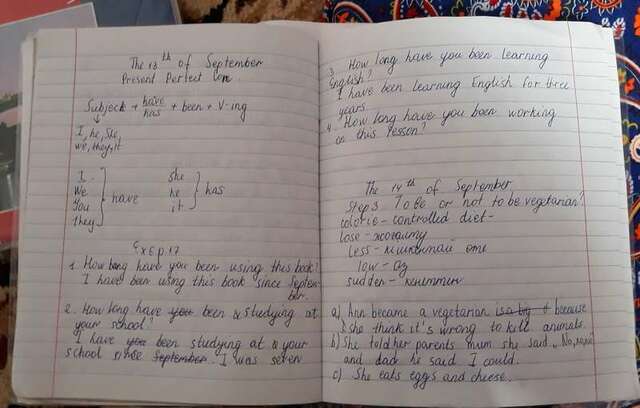 The 13th of September
Present Perfect Con.
Subject + have/has + been + V-ing
I, he, she,
we, they, it
I
We
You
They
have
she
he
it
has
Ex 6 p.17
1. How long have you been using this book?
I have been using this book since Septem-
ber.
2. How long have you been studying at
your school?
I have you been studying at your
school since September. I was seven
3. How long have you been learning
English?
I have been learning English for three
years.
4. How long have you been working
on this lesson?
The 14th of September
Step 3 To be or not to be vegetarian?
calorie-controlled diet-
lose - жоғалту
less -
low - аз
sudden -
a) Ann became a vegetarian is a big because
she think it's wrong to kill animals.
b) She told her parents mum she said „No,
and dad he said I could.
c) She eats eggs and cheese.